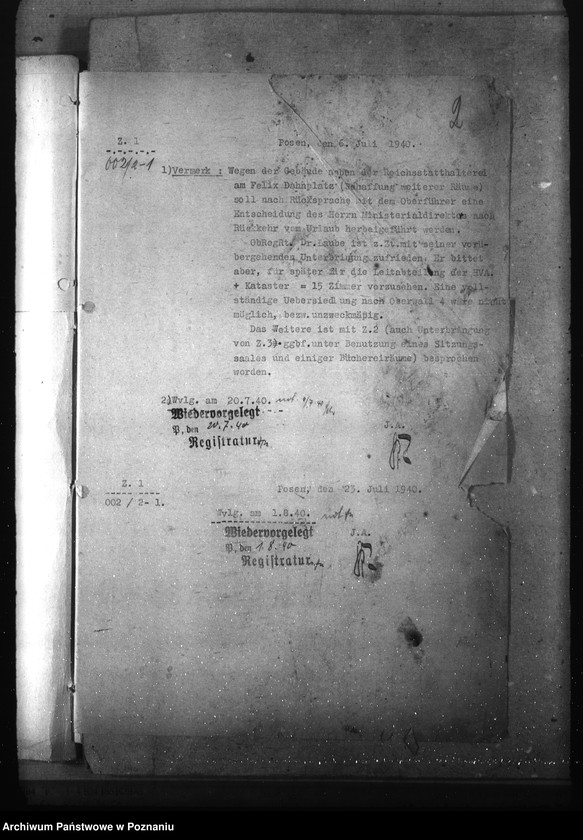 2
Z. 1
Posen, den 6. Juli 1940.
002/2-1
1) Vermerk : Wegen der Gebäude neben der Reichsstatthalterei
am Felix Dahnplatz (Schaffung weiterer Räume)
soll nach Rücksprache mit dem Oberführer eine
Entscheidung des Herrn Ministerialdirektor nach
Rückkehr vom Urlaub herbeigeführt werden.
ObRegRt. Dr. Laube ist z.Zt.mit seiner vorü-
bergehenden Unterbringung zufrieden. Er bittet
aber, für später für die Leitabteilung der HVA.
+ Kataster = 15 Zimmer vorzusehen. Eine voll-
ständige Uebersiedlung nach Oberwall 4 wäre nicht
möglich, bezw.unzweckmäßig.
Das Weitere ist mit Z.2 (auch Unterbringung
von Z.3) ggbf.unter Benutzung eines Sitzungs-
saales und einiger Büchereiräume) besprochen
worden.
2) Wvlg. am 20.7.40. not.
Wiedervorgelegt
P, den 20.7.40
Registratur
J.A.
Z. 1
Posen, den 23. Juli 1940.
002 / 2- 1.
Wvlg. am 1.8.40. not
Wiedervorgelegt
J.A.
P, den 1.8.40
Registratur
Archiwum Państwowe w Poznaniu